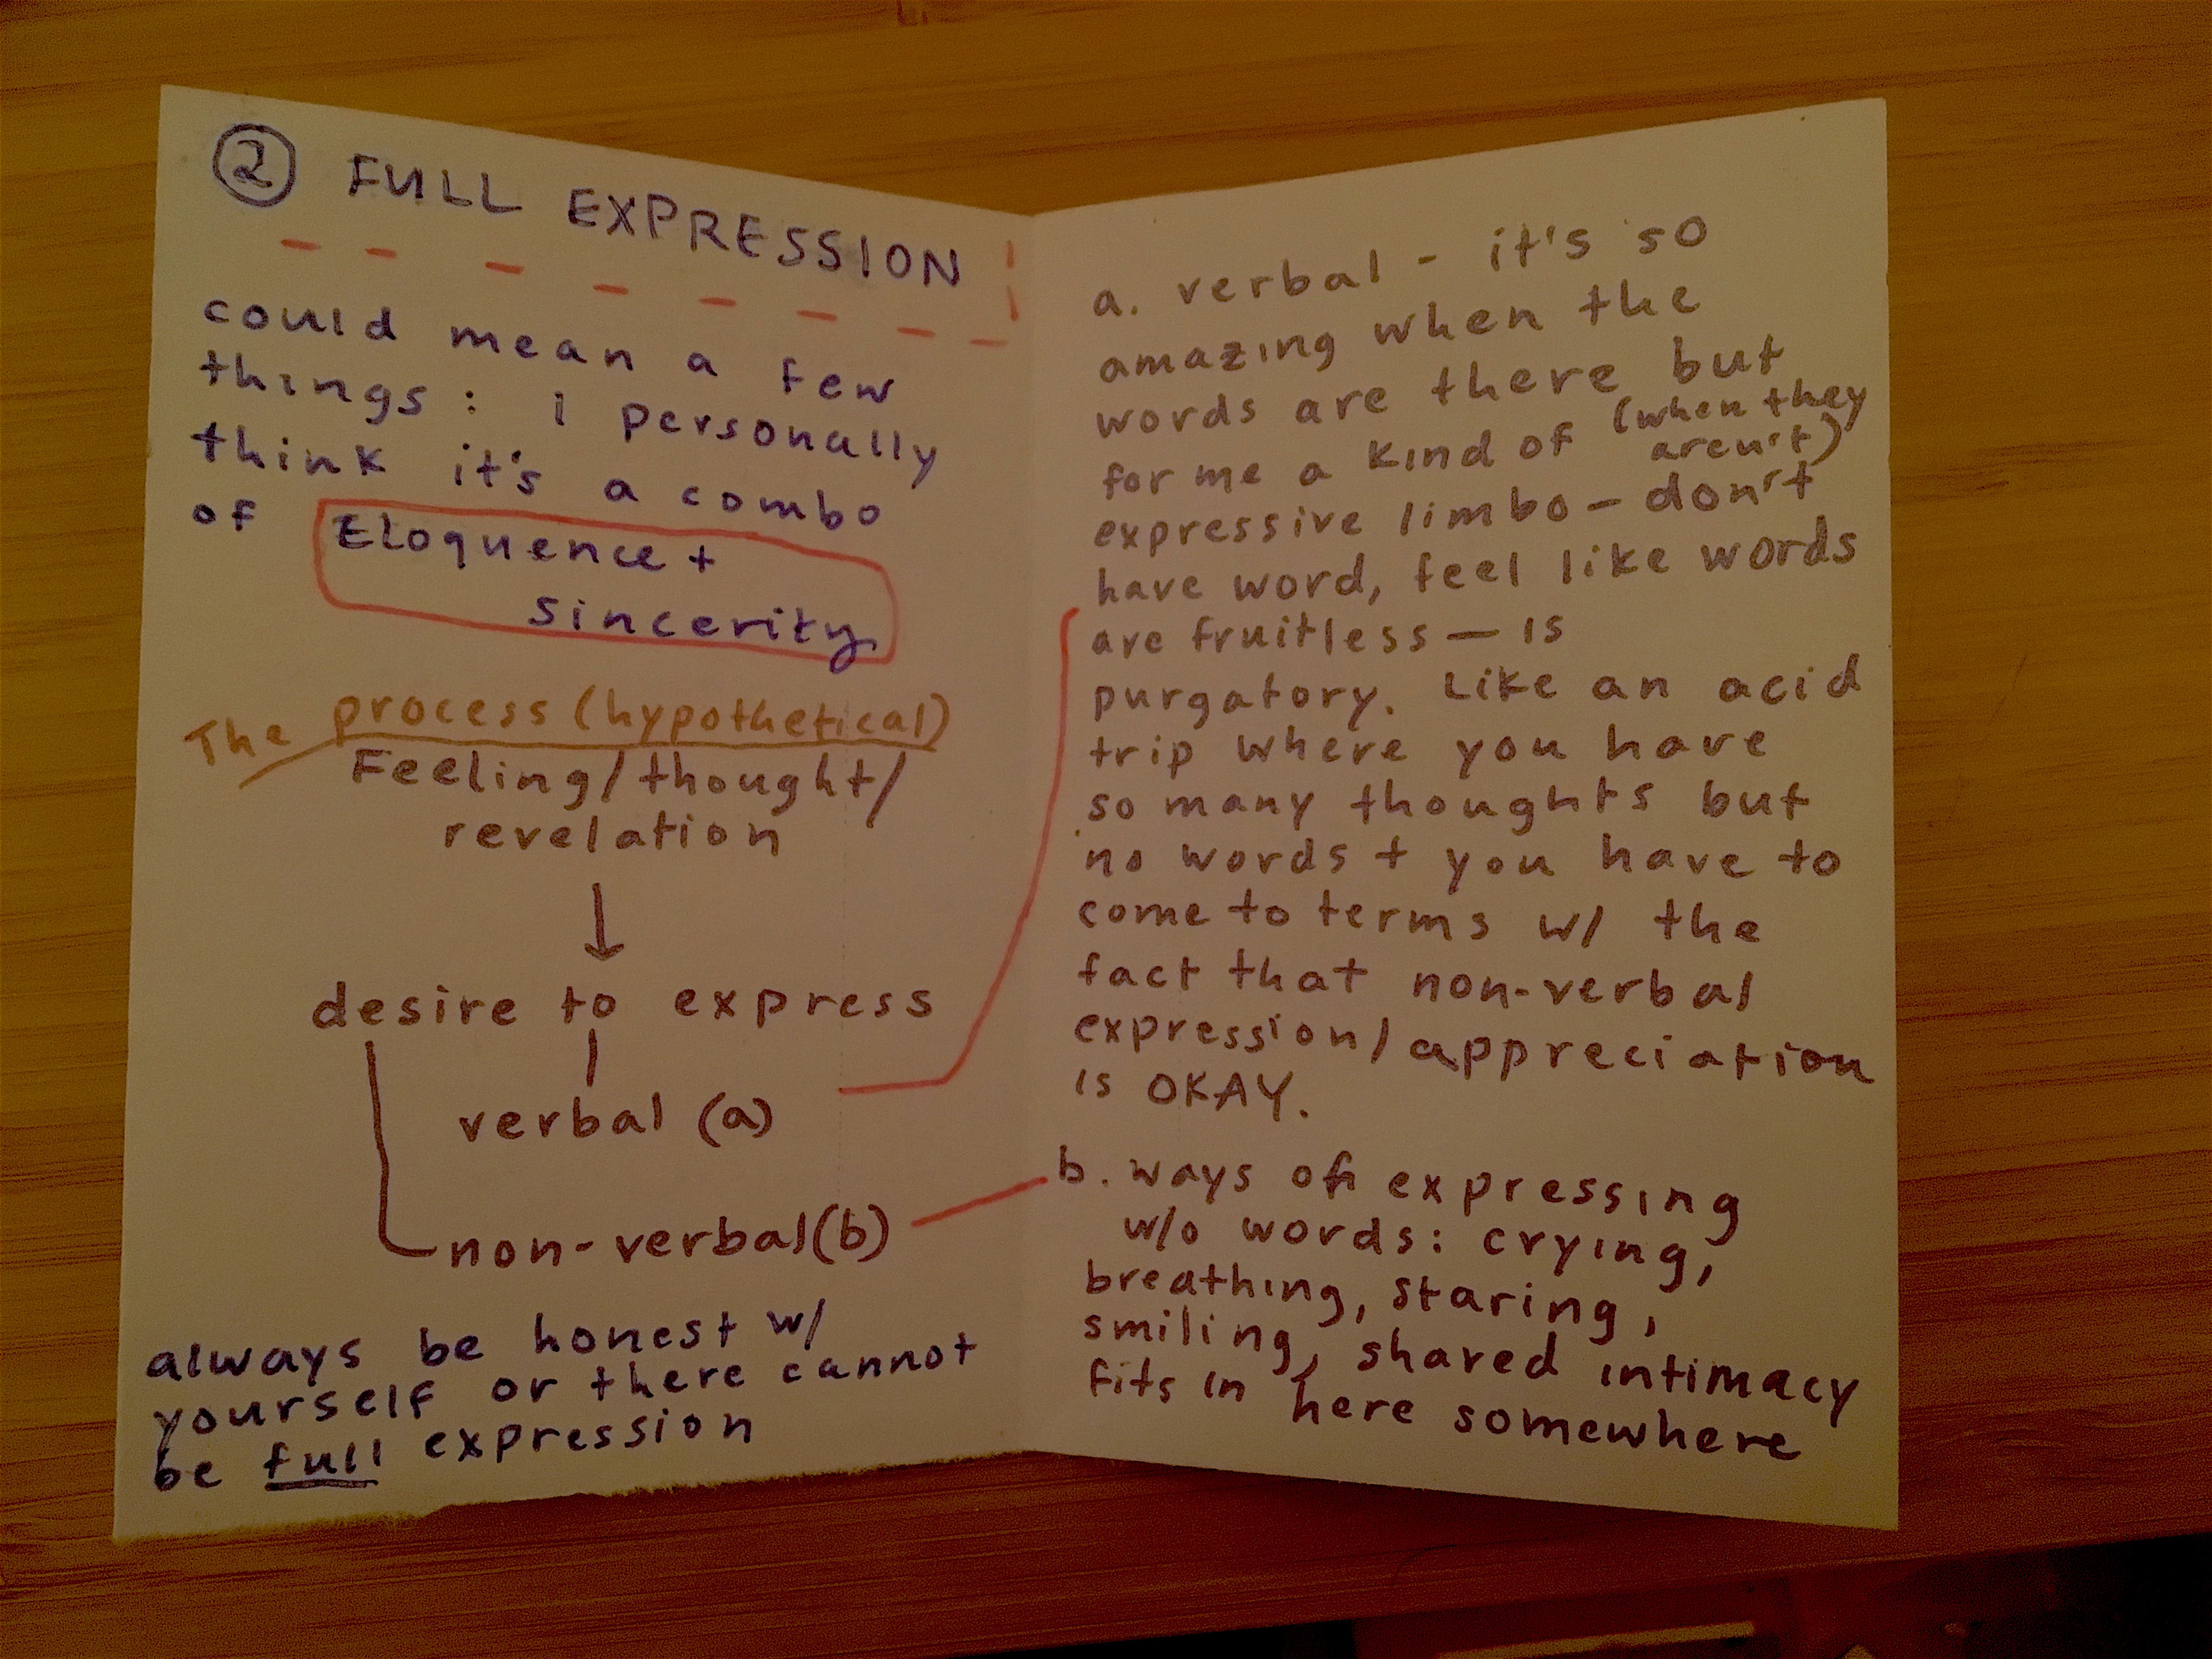 ② FULL EXPRESSION
could mean a few
things: I personally
think it's a combo
of Eloquence +
sincerity
The process (hypothetical)
Feeling/thought/
revelation
↓
desire to express
verbal (a)
non-verbal(b)
always be honest w/
yourself or there cannot
be full expression
a. verbal - it's so
amazing when the
words are there but
for me a kind of (when they
aren't)
expressive limbo - don't
have word, feel like words
are fruitless — is
purgatory. Like an acid
trip where you have
so many thoughts but
no words + you have to
come to terms w/ the
fact that non-verbal
expression/appreciation
is OKAY.
b. ways of expressing
w/o words: crying,
breathing, staring,
smiling, shared intimacy
fits in here somewhere